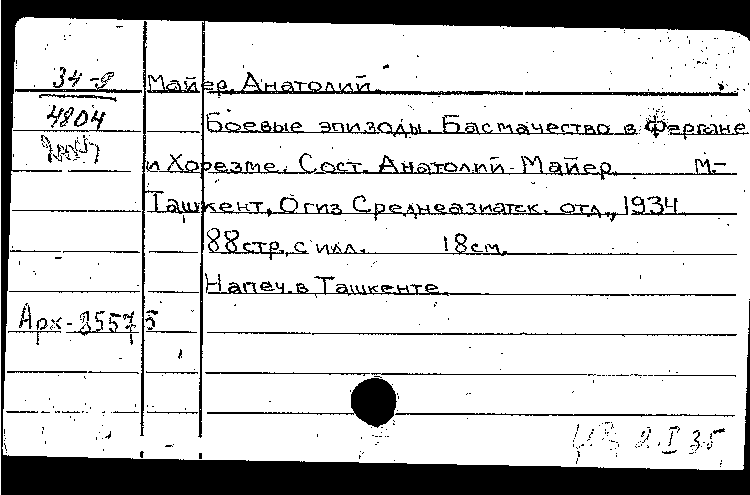 34-9
4804
Майер, Анатолий.
Боевые эпизоды. Басмачество в Фергане
и Хорезме. Сост. Анатолий Майер. М.-
Ташкент, Огиз Среднеазиатск. отд., 1934
88 стр. с илл. 18 см.
Напеч. в Ташкенте.
Арх-85575
2.I 35